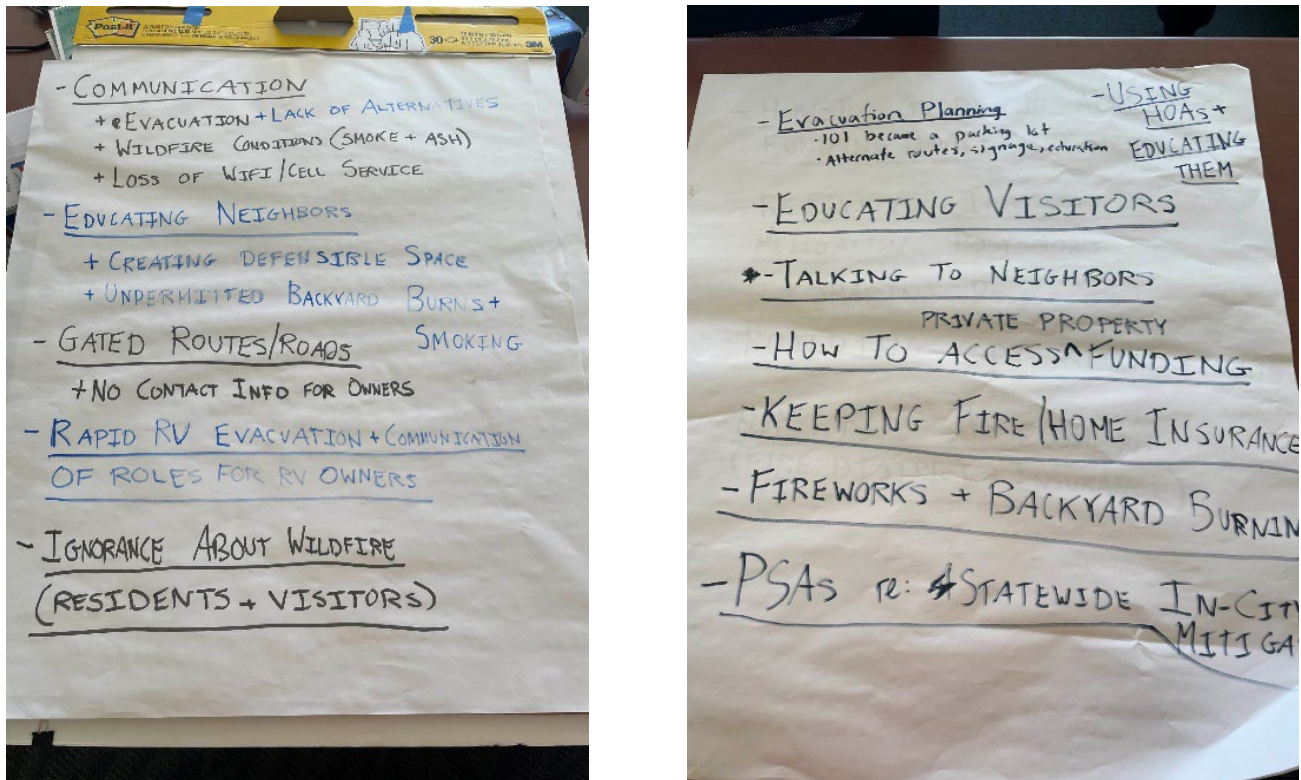 Post-it
30
3M
- COMMUNICATION
+ EVACUATION + LACK OF ALTERNATIVES
+ WILDFIRE CONDITIONS (SMOKE + ASH)
+ LOSS OF WIFI/CELL SERVICE
- EDUCATING NEIGHBORS
+ CREATING DEFENSIBLE SPACE
+ UNPERMITTED BACKYARD BURNS +
SMOKING
- GATED ROUTES/ROADS
+ NO CONTACT INFO FOR OWNERS
- RAPID RV EVACUATION + COMMUNICATION
OF ROLES FOR RV OWNERS
- IGNORANCE ABOUT WILDFIRE
(RESIDENTS + VISITORS)
- Evacuation Planning
· 101 became a parking lot
· Alternate routes, signage, education
- USING
HOAs +
EDUCATING
THEM
- EDUCATING VISITORS
- TALKING TO NEIGHBORS
PRIVATE PROPERTY
- HOW TO ACCESS ^ FUNDING
- KEEPING FIRE/HOME INSURANCE
- FIREWORKS + BACKYARD BURNIN
- PSAs re: STATEWIDE IN-CITY
MITIGA